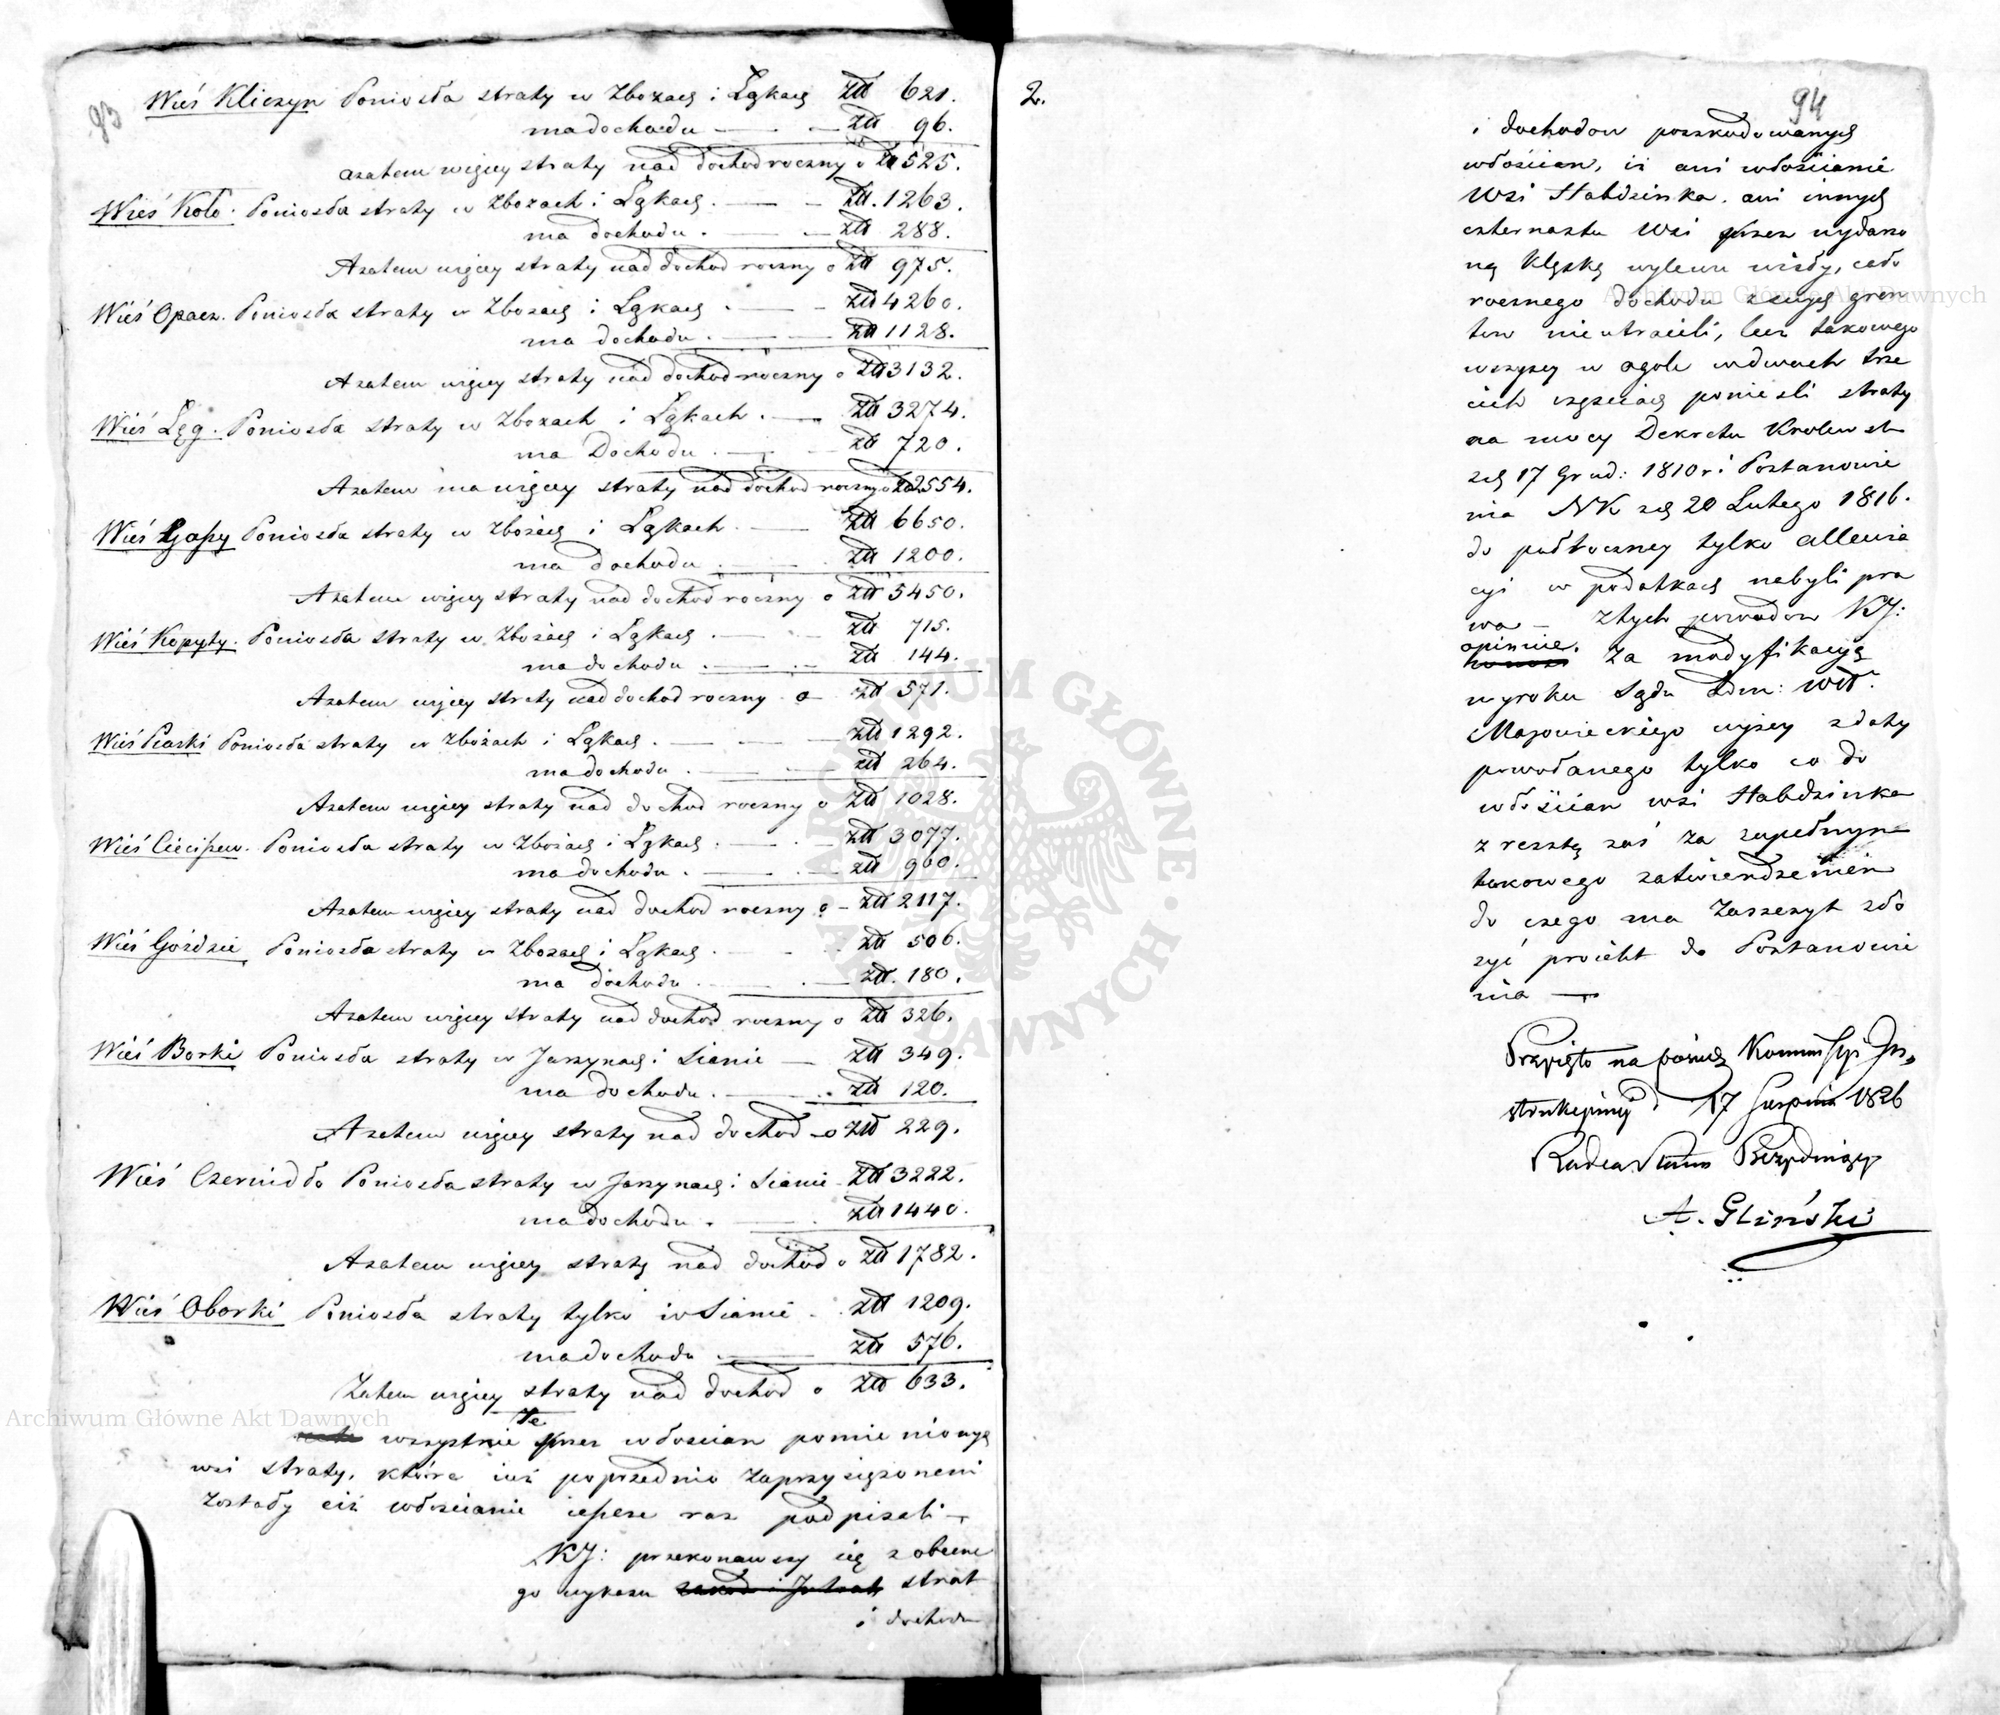 93
Wieś Kliczyn Poniosła straty w Zbożach i Łąkach Złł 621.
ma dochodu — — Złł 96.
azatem więcey straty nad dochod roczny o Zł 525.
Wieś Koło. Poniosła straty w Zbozach i Łąkach. — — Złł. 1263.
ma dochodu. — — Złł 288.
Azatem więcey straty nad dochod roczny o Złł 975.
Wieś Opacz. Poniosła straty w Zbozach i Łąkach. — Złł 4260.
ma dochodu. — — Złł 1128.
Azatem więcey straty nad dochod roczny o Złł 3132.
Wieś Łęg. Poniosła straty w Zbozach i Łąkach. — Złł 3274.
ma Dochodu. — — Złł 720.
Azatem ma więcey straty nad dochod roczny o Zł 2554.
Wieś Gassy Poniosła straty w Zbożach i Łąkach. — Złł 6650.
ma dochodu. — Złł 1200.
Azatem więcey straty nad dochod roczny o Złł 5450.
Wieś Kopyty. Poniosła straty w Zbożach i Łąkach. — Złł 715.
ma dochodu. — — Złł 144.
Azatem więcey straty nad dochod roczny o Złł 571.
Wieś Piaski Poniosła straty w Zbożach i Łąkach. — — Złł 1292.
ma dochodu. — — Złł 264.
Azatem więcey straty nad dochod roczny o Złł 1028.
Wieś Cieciszew. Poniosła straty w Zbożach i Łąkach. — Złł 3077.
ma dochodu. — — Złł 960.
Azatem więcey straty nad dochod roczny o — Złł 2117.
Wieś Goździe Poniosła straty w Zbozach i Łąkach. — Złł 506.
ma dochodu. — — Złł. 180.
Azatem więcey straty nad dochod roczny o Złł 326.
Wieś Borki Poniosła straty w Jarzynach i Sianie — Złł 349.
ma dochodu. — Złł 120.
Azatem więcey straty nad dochod o Złł 229.
Wieś Czernidło Poniosła straty w Jarzynach i Sianie Złł 3222.
ma dochodu. — Złł 1440.
Azatem więcey straty nad dochod o Złł 1782.
Wieś Oborki Poniosła straty tylko w Sianie. Złł 1209.
ma dochodu. — Złł 576.
Zatem więcey straty nad dochod o Złł 633.
Te
wszystkie przez włoscian pomienionych
wsi straty, które iuż poprzednio zaprzysiężonemi
zostały ciż włoscianie ieszcze raz podpisali —
KJ: przekonawszy się z obecne
go wykazu strat
i dochodu
2.
94
i dochodow poszkodowanych
włościan, iż ani włościanie
Wsi Habdzinka. ani innych
czternastu Wsi przez wydarzo
ną klęskę wylewu wisły, cało
rocznego dochodu z swych grun
tow nie utracili, lecz takowego
wszyscy w ogole w dwoch trze
cich częściach ponieśli straty
na mocy Dekretu Krolewsk
zd 17 Grud: 1810 r i Postanowie
nia NK zd 20 Lutego 1816.
do pułroczney tylko allewia
cyi w podatkach nabyli pra
wa — Z tych powodow KJ:
opiniuie.
za modyfikacyą
wyroku Sądu Adm: Wdt.
Mazowieckiego wyżey z daty
powołanego tylko co do
włościan wsi Habdzinka
z resztą zaś za zupełnym
takowego zatwierdzeniem
do czego ma zaszczyt zło
żyć proiekt do Postanowie
nia —
Przyięto na posiedz Kommissyi In„
strukcyiney d 17 Sierpnia 1826
Radca Stanu Prezyduiący
A. Gliński
Archiwum Główne Akt Dawnych
Archiwum Główne Akt Dawnych
ARCHIWUM GŁÓWNE · AKT DAWNYCH ·